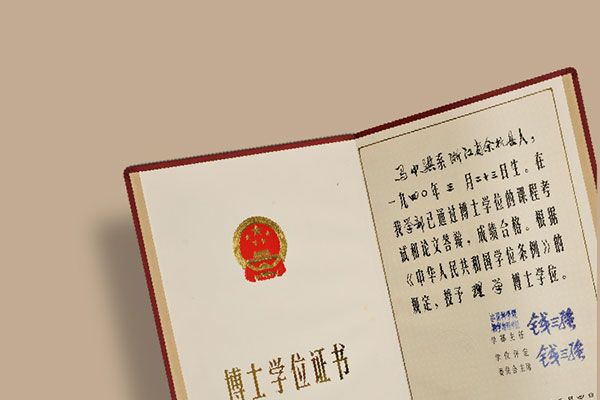 博士学位证书
马中骐系浙江省余杭县人，
一九四〇年三月二十三日生。在
我学部已通过博士学位的课程考
试和论文答辩，成绩合格。根据
《中华人民共和国学位条例》的
规定，授予理学博士学位。
学部主任 钱三强
学位评定
委员会主席 钱三强